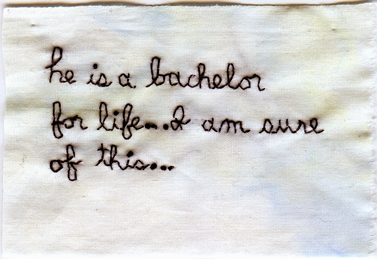 he is a bachelor
for life...I am sure
of this...